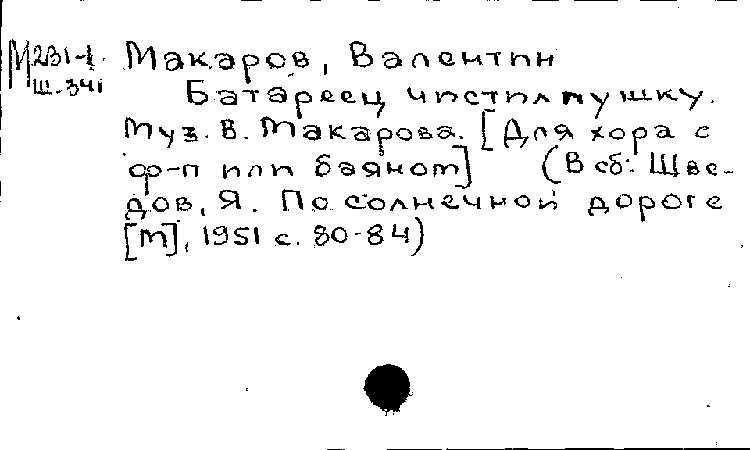 М231-1 Макаров, Валентин
Ш-341 Батареец чистил пушку.
Муз. В. Макарова. [Для хора с
ф-п или баяном] (В сб: Шве-
дов, Я. По солнечной дороге
[М], 1951 с. 80-84)